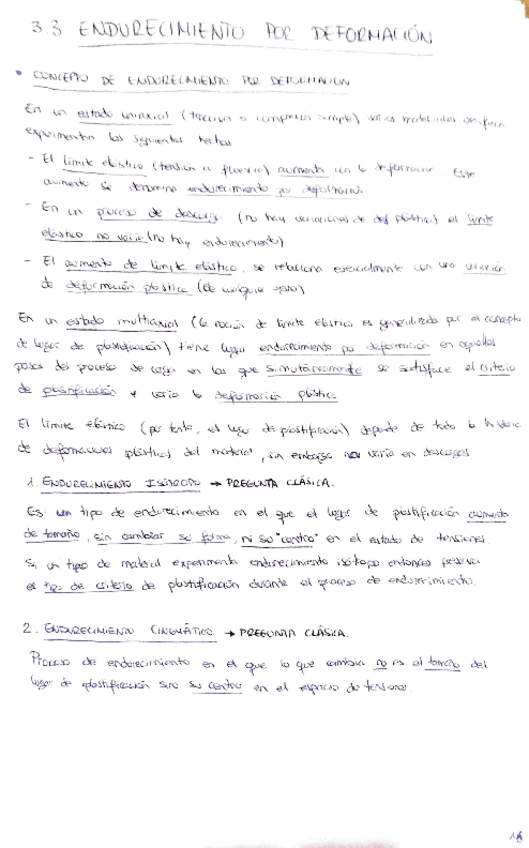 3.3 ENDURECIMIENTO POR DEFORMACIÓN
• CONCEPTO DE ENDURECIMIENTO POR DEFORMACION
En un estado uniaxial (traccion o compresion simple)
experimentan los siguientes hechos
- El límite elástico (tensión de fluencia) aumenta con la deformacion. Este
aumento se denomina endurecimiento por deformación.
- En un proceso de descarga (no hay variaciones de def plástica) el límite
elástico no varía (no hay endurecimiento)
- El aumento de límite elástico, se relaciona esencialmente con una variación
de deformación plástica (de cualquier signo)
En un estado multiaxial (la noción de límite elástico es generalizada por el concepto
de lugar de plastificación) tiene lugar endurecimiento por deformación en aquellos
pasos del proceso de carga en los que simultáneamente se satisface el criterio
de plastificación y varía la deformación plástica.
El límite elástico (por tanto, el lugar de plastificación) depende de toda la historia
de deformaciones plásticas del material, sin embargo no varía en descargas
1. ENDURECIMIENTO ISÓTROPO → PREGUNTA CLÁSICA.
Es un tipo de endurecimiento en el que el lugar de plastificación aumenta
de tamaño, sin cambiar su forma, ni su "centro" en el estado de tensiones.
Si un tipo de material experimenta endurecimiento isótropo entonces preserva
el tipo de criterio de plastificación durante el proceso de endurecimiento.
2. ENDURECIMIENTO CINEMÁTICO → PREGUNTA CLÁSICA.
Proceso de endurecimiento en el que lo que cambia no es el tamaño del
lugar de plastificación sino su centro en el espacio de tensiones.
16